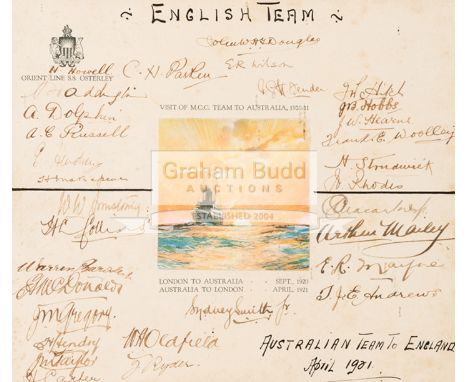 ENGLISH TEAM
John W.H.T. Douglas
E.R. Wilson
H. Howell
C. H. Parkin
ORIENT LINE S.S. OSTERLEY
J. W. Hitch
J B Hobbs
VISIT OF M.C.C. TEAM TO AUSTRALIA, 1920-21
A. Dolphin
W. Hearne
A. C. Russell
Frank E. Woolley
Graham Budd
AUCTIONS
ESTABLISHED 2004
H Strudwick
W. Rhodes
W W Armstrong
Arthur Mailey
Warren Bardsley
LONDON TO AUSTRALIA - SEPT., 1920
E. R. Mayne
AUSTRALIA TO LONDON - APRIL, 1921
T. J. E. Andrews
J M Gregory
Sydney Smith Jr
W A Oldfield
AUSTRALIAN TEAM TO ENGLAND
J M Taylor
J Ryder
April 1921.
H Carter